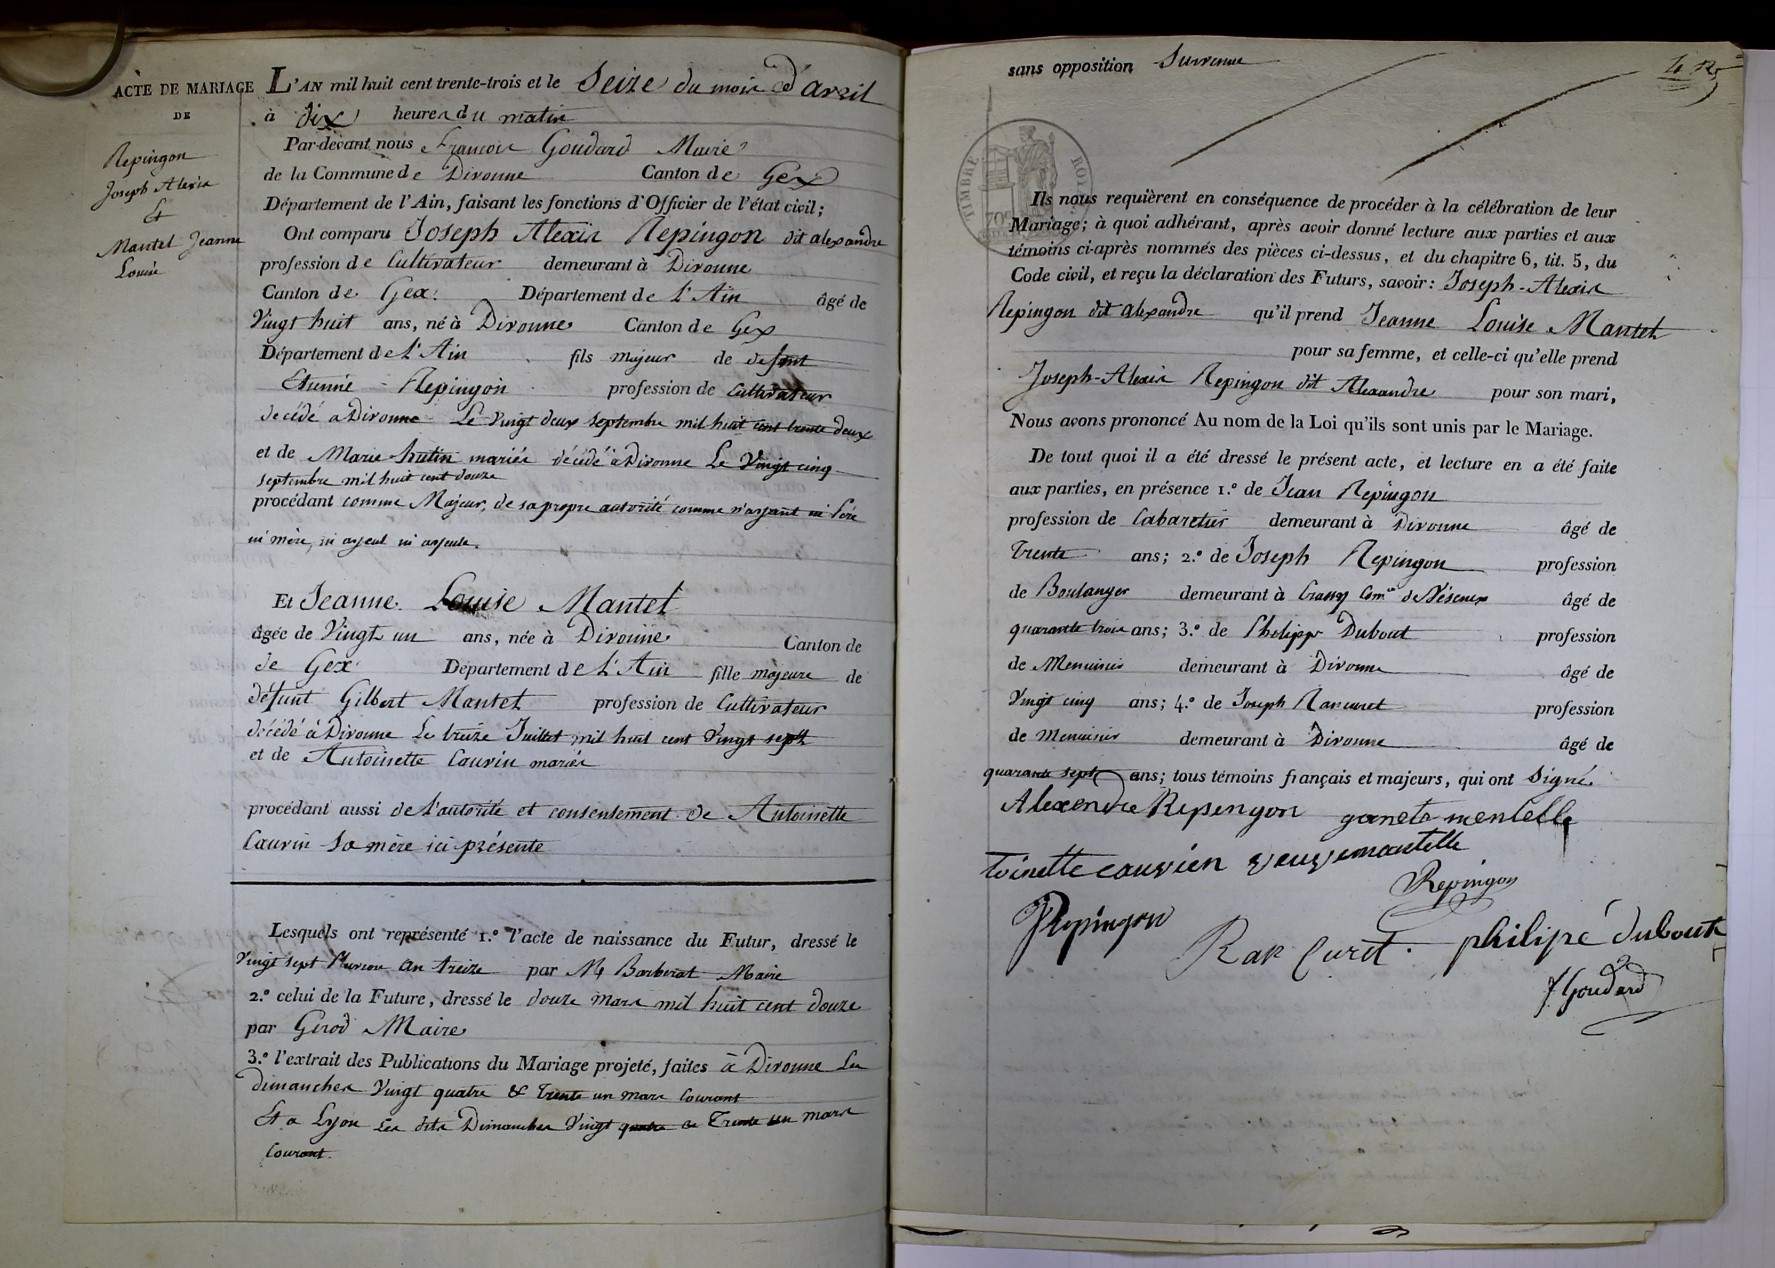 ACTE DE MARIAGE
DE
Repingon
Joseph Alexis
Et
Mantel Jeanne
Louise
L'AN mil huit cent trente-trois et le Seize du mois d'avril
à dix heures du matin
Par-devant nous François Goudard Maire
de la Commune de Divonne Canton de Gex
Département de l'Ain, faisant les fonctions d'Officier de l'état civil;
Ont comparu Joseph Alexis Repingon dit alexandre
profession de Cultivateur demeurant à Divonne
Canton de Gex Département de l'Ain âgé de
Vingt huit ans, né à Divonne Canton de Gex
Département de l'Ain fils majeur de defunt
Etienne Repingon profession de Cultivateur
decédé a Divonne Le Vingt deux Septembre mil huit cent trente deux
et de Marie hutin mariés décédé a Divonne Le Vingt cinq
septembre mil huit cent douze
procédant comme Majeur, de sa propre autorité comme n'ayant ni Père
ni mère, ni ayeul ni ayeule.
Et Jeanne Louise Mantel
âgée de Vingt un ans, née à Divonne Canton de
de Gex Département de l'Ain fille majeure de
défunt Gilbert Mantel profession de Cultivateur
décédé à Divonne Le treize Juillet mil huit cent Vingt sept
et de Antoinette Cauvin mariés
procédant aussi de l'autorité et consentement de Antoinette
Cauvin Sa mère ici présente
Lesquels ont représenté 1.º l'acte de naissance du Futur, dressé le
Vingt sept Pluviose an treize par Mr Barberat Maire
2.º celui de la Future, dressé le douze mars mil huit cent douze
par Girod Maire
3.º l'extrait des Publications du Mariage projeté, faites à Divonne Les
dimanches Vingt quatre & trente un mars Courant
Et a Lyon Les dits Dimanches Vingt quatre & Trente un mars
Courant.
sans opposition Survenue
TIMBRE ROYAL
70c
Ils nous requièrent en conséquence de procéder à la célébration de leur
Mariage; à quoi adhérant, après avoir donné lecture aux parties et aux
témoins ci-après nommés des pièces ci-dessus, et du chapitre 6, tit. 5, du
Code civil, et reçu la déclaration des Futurs, savoir: Joseph-Alexis
Repingon dit alexandre qu'il prend Jeanne Louise Mantel
pour sa femme, et celle-ci qu'elle prend
Joseph-Alexis Repingon dit Alexandre pour son mari,
Nous avons prononcé Au nom de la Loi qu'ils sont unis par le Mariage.
De tout quoi il a été dressé le présent acte, et lecture en a été faite
aux parties, en présence 1.º de Jean Repingon
profession de Cabaretier demeurant à Divonne âgé de
Trente ans; 2.º de Joseph Repingon profession
de Boulanger demeurant à Crassy âgé de
quarante trois ans; 3.º de Philippe Dubout profession
de Menuisier demeurant à Divonne âgé de
Vingt cinq ans; 4.º de Joseph Rancuret profession
de menuisier demeurant à Divonne âgé de
quarante sept ans; tous témoins français et majeurs, qui ont Signé
Alexendre Repengon ganete mentelle
toinette cauvien veuve mantelle
Repingon
JRepingon
Ran Curet. philipe dubout
f Goudard